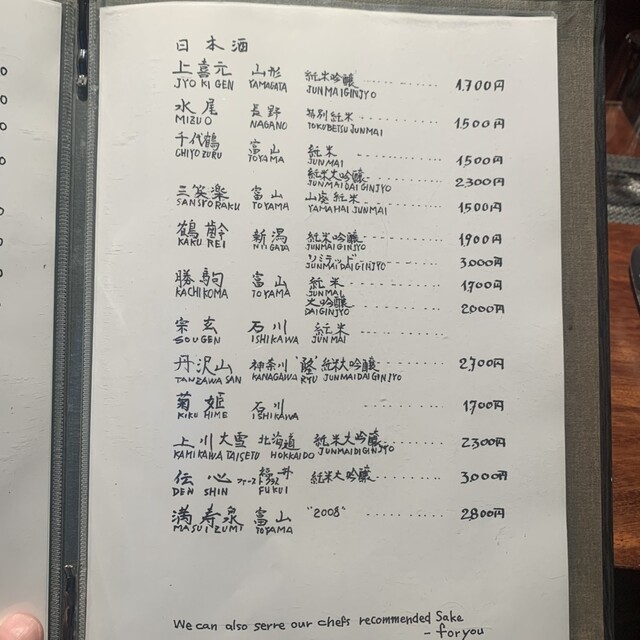 日本酒
上喜元 山形 純米吟醸 1.700円
JYOKIGEN YAMAGATA JUNMAIGINJYO
水尾 長野 特別純米 1500円
MIZUO NAGANO TOKUBETSU JUNMAI
千代鶴 富山 純米 1500円
CHIYOZURU TOYAMA JUNMAI
純米大吟醸 2300円
JUNMAI DAIGINJYO
三笑楽 富山 山廃純米 1500円
SANSYORAKU TOYAMA YAMAHAI JUNMAI
鶴齢 新潟 純米吟醸 1900円
KAKUREI NIIGATA JUNMAIGINJYO
リミテッド 3000円
JUNMAIDAIGINJYO
勝駒 富山 純米 1700円
KACHIKOMA TOYAMA JUNMAI
大吟醸 2000円
DAIGINJYO
宗玄 石川 純米
SOUGEN ISHIKAWA JUNMAI
丹沢山 神奈川 純米大吟醸 2700円
TANZAWASAN KANAGAWA RYU JUNMAIDAIGINJYO
菊姫 石川 1700円
KIKUHIME ISHIKAWA
上川大雪 北海道 純米大吟醸 2300円
KAMIKAWATAISETU HOKKAIDO JUNMAIDIGINJYO
伝心 福井 純米大吟醸 3000円
DEN SHIN FUKUI
満寿泉 富山 "2008" 2800円
MASUIZUMI TOYAMA
We can also serre our chefs recommended Sake
- for you